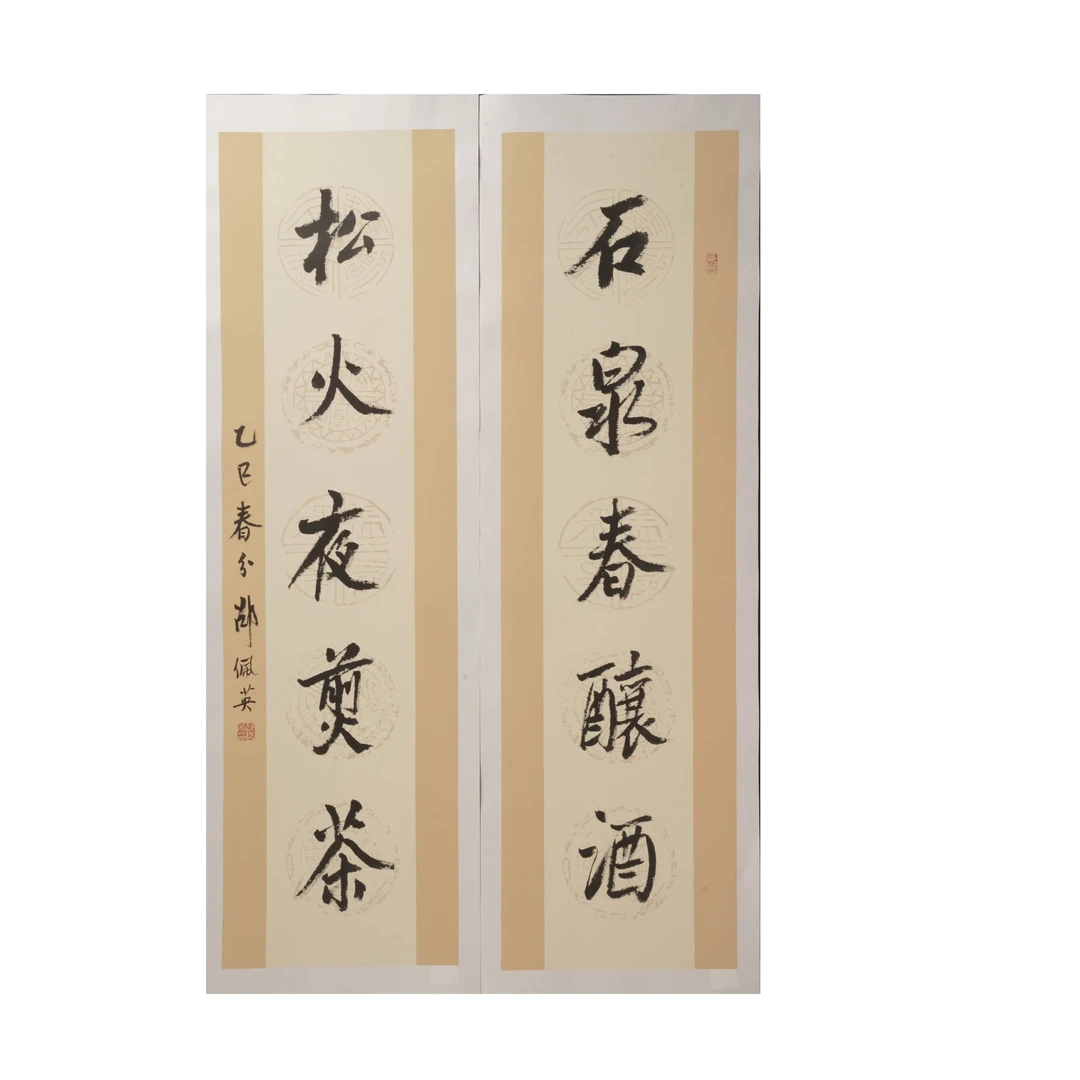 石泉春釀酒
松火夜煎茶
乙巳春分 佩英